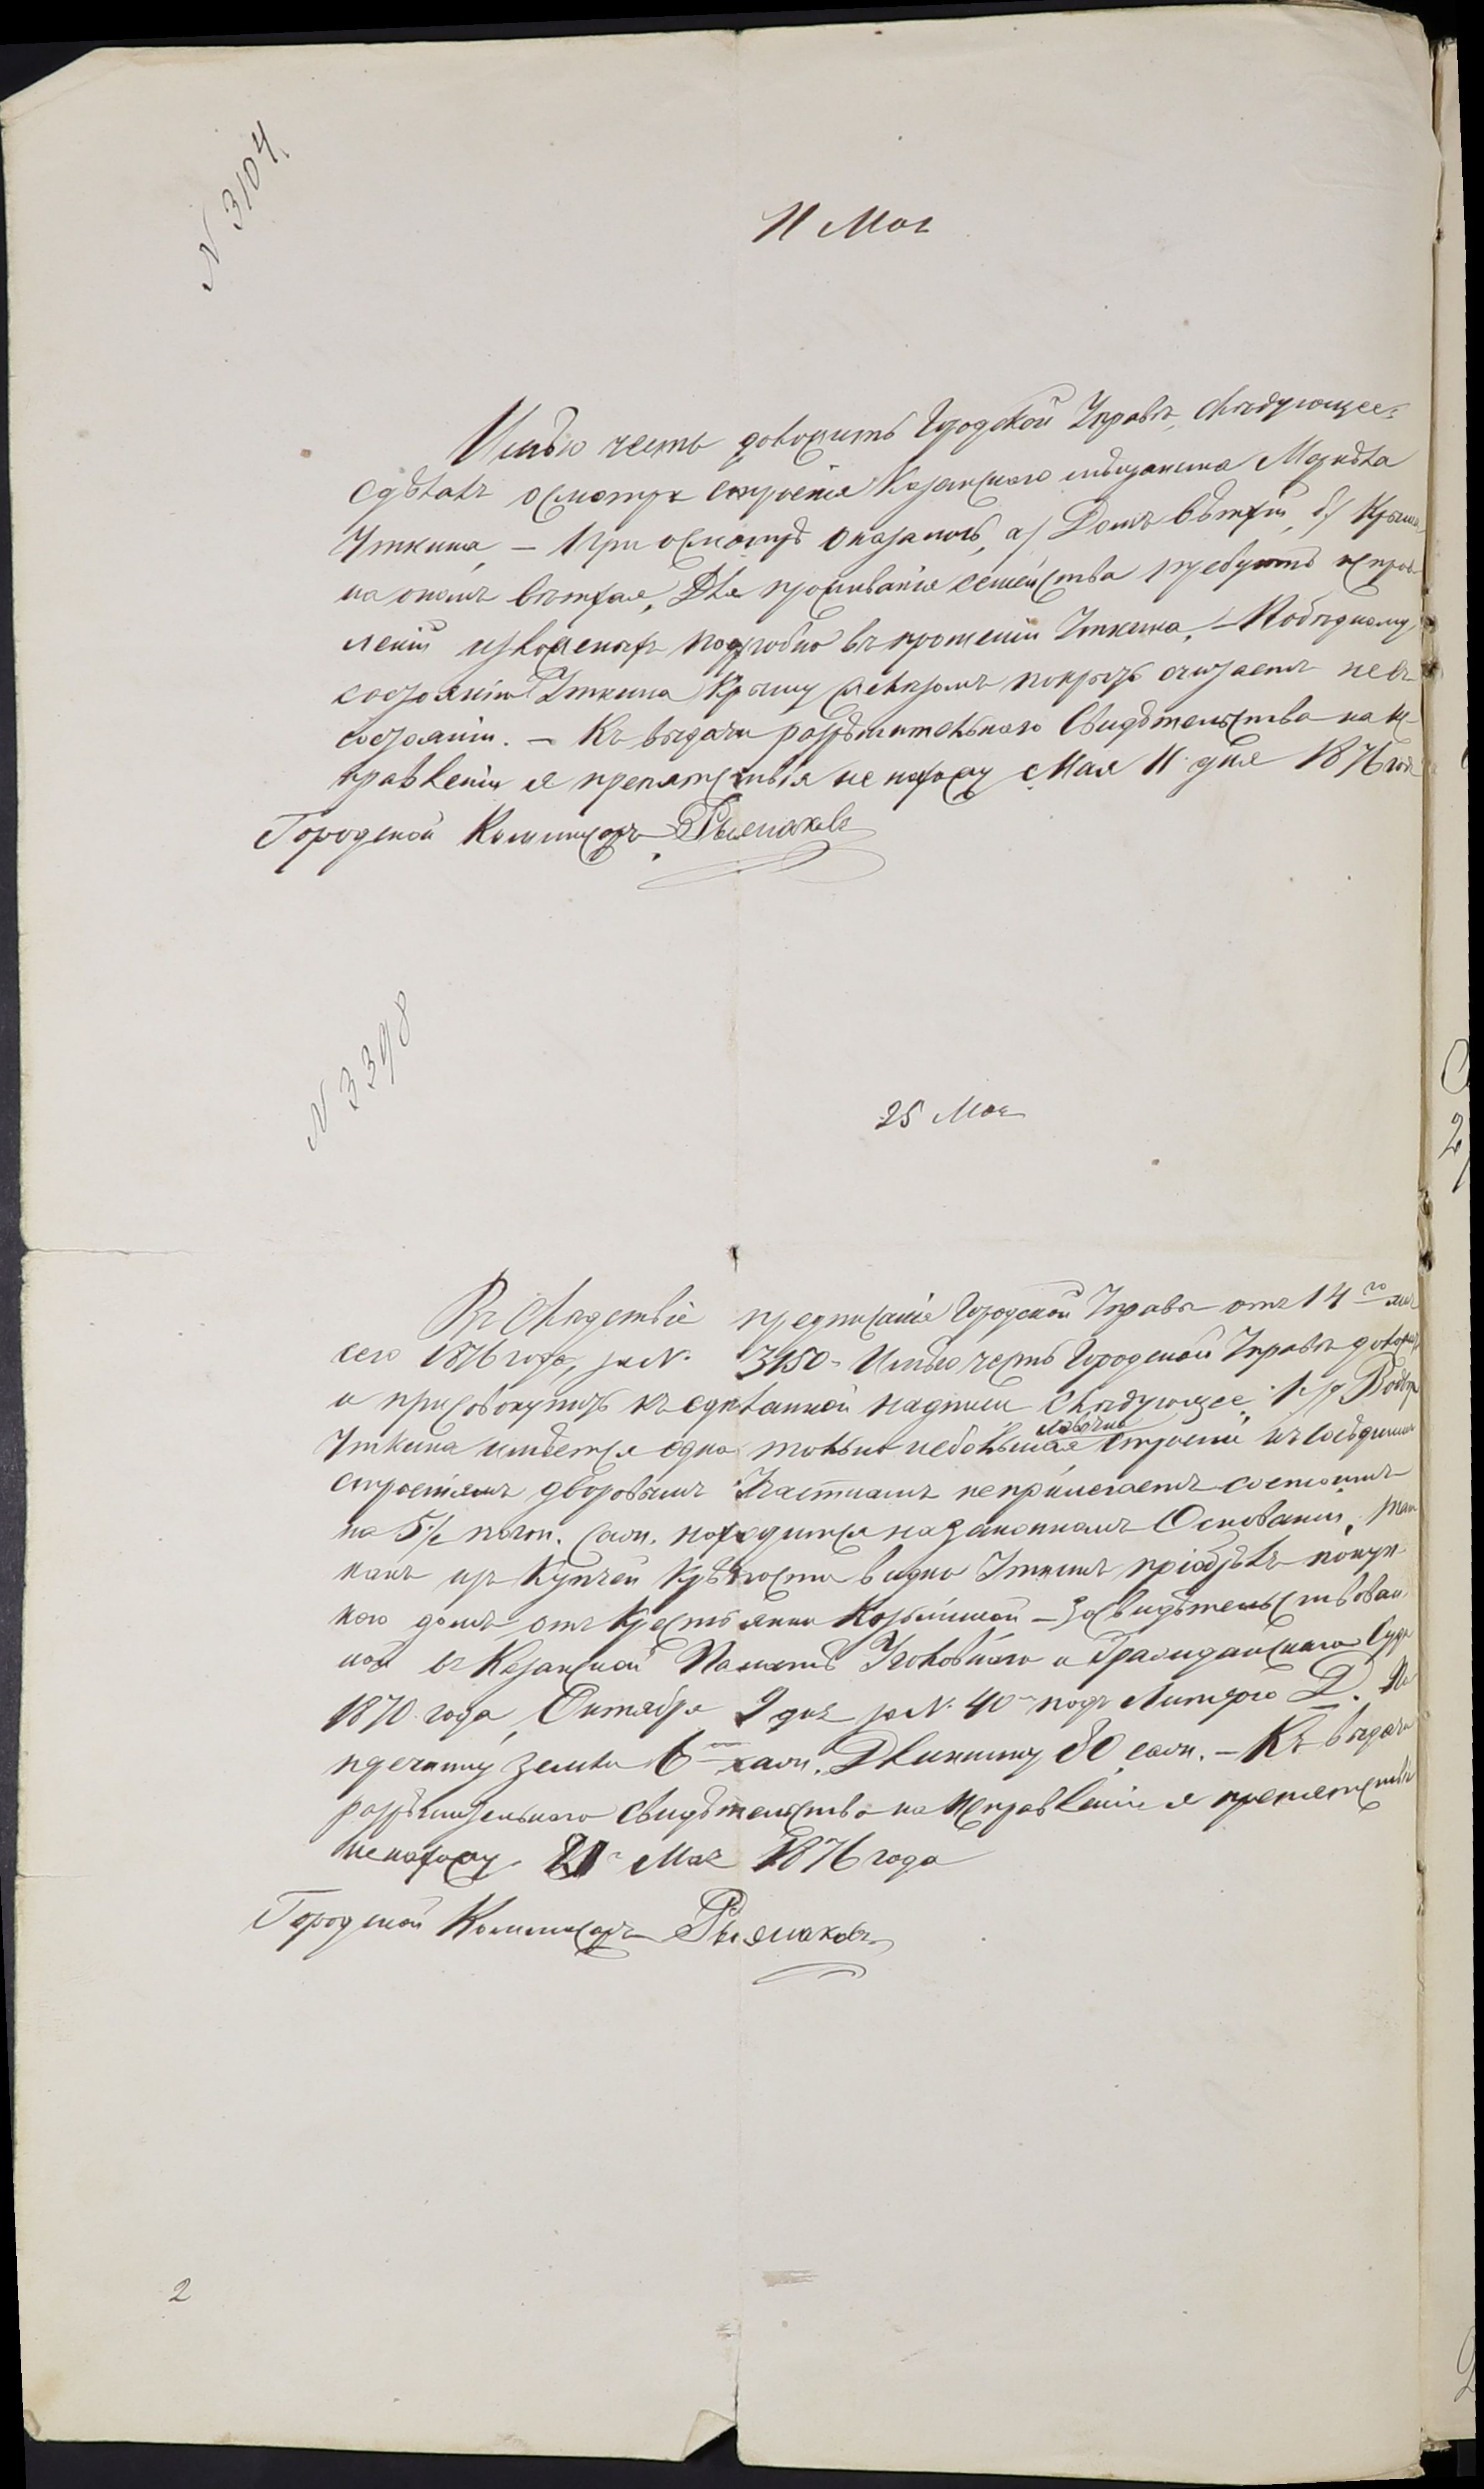 N 3104
11 Мая
Имѣю честь доложить Городской Управѣ, слѣдующее:
сдѣлалъ осмотръ строенія Казанскаго мѣщанина Маркела
Уткина, – При осмотрѣ оказалось, а) Домъ вѣтхій, б) Крыша
на ономъ вѣтхая, Для проживанія семейства требуютъ исправ-
леніи изложенныхъ подробно въ прошеніи Уткина, – По бѣдному
состоянію Уткина крышу желѣзомъ покрыть считаетъ не въ
состояніи. – Къ выдачи разрѣшительнаго свидѣтельства на ис-
правленіи я препятствія не нахожу Мая 11 дня 1876 года
Городской Коммисаръ
N 3398
25 Мая
Въ слѣдствіе предписанія Городской Управы отъ 14го мая
сего 1876 года, за N. 3150 – Имѣю честь Городской Управѣ доложить
и присовокупить къ сдѣланной надписи слѣдующее:
Уткина имѣется одно только небольшая строеніе къ сосѣднимъ
строеніямъ дворовымъ частнамъ не прилегаетъ состоитъ
на 5½ погон. саж. находится на законномъ Основаніи, такъ
какъ изъ Купчей крѣпости видно Уткинъ пріобрѣлъ покуп-
кою домъ отъ крестьянки – Засвидѣтельствован-
ной въ Казанской Палатѣ Уголовнаго и Гражданскаго Суда
1870 года, Октября 9 дня за N. 40 подъ Литерою Д. По
земли 6 саж. Длиннику 30 саж. – Къ выдачи
разрѣшительнаго свидѣтельства на исправленіе я препятствія
не нахожу. 21 Мая 1876 года
Городской Коммисаръ
2